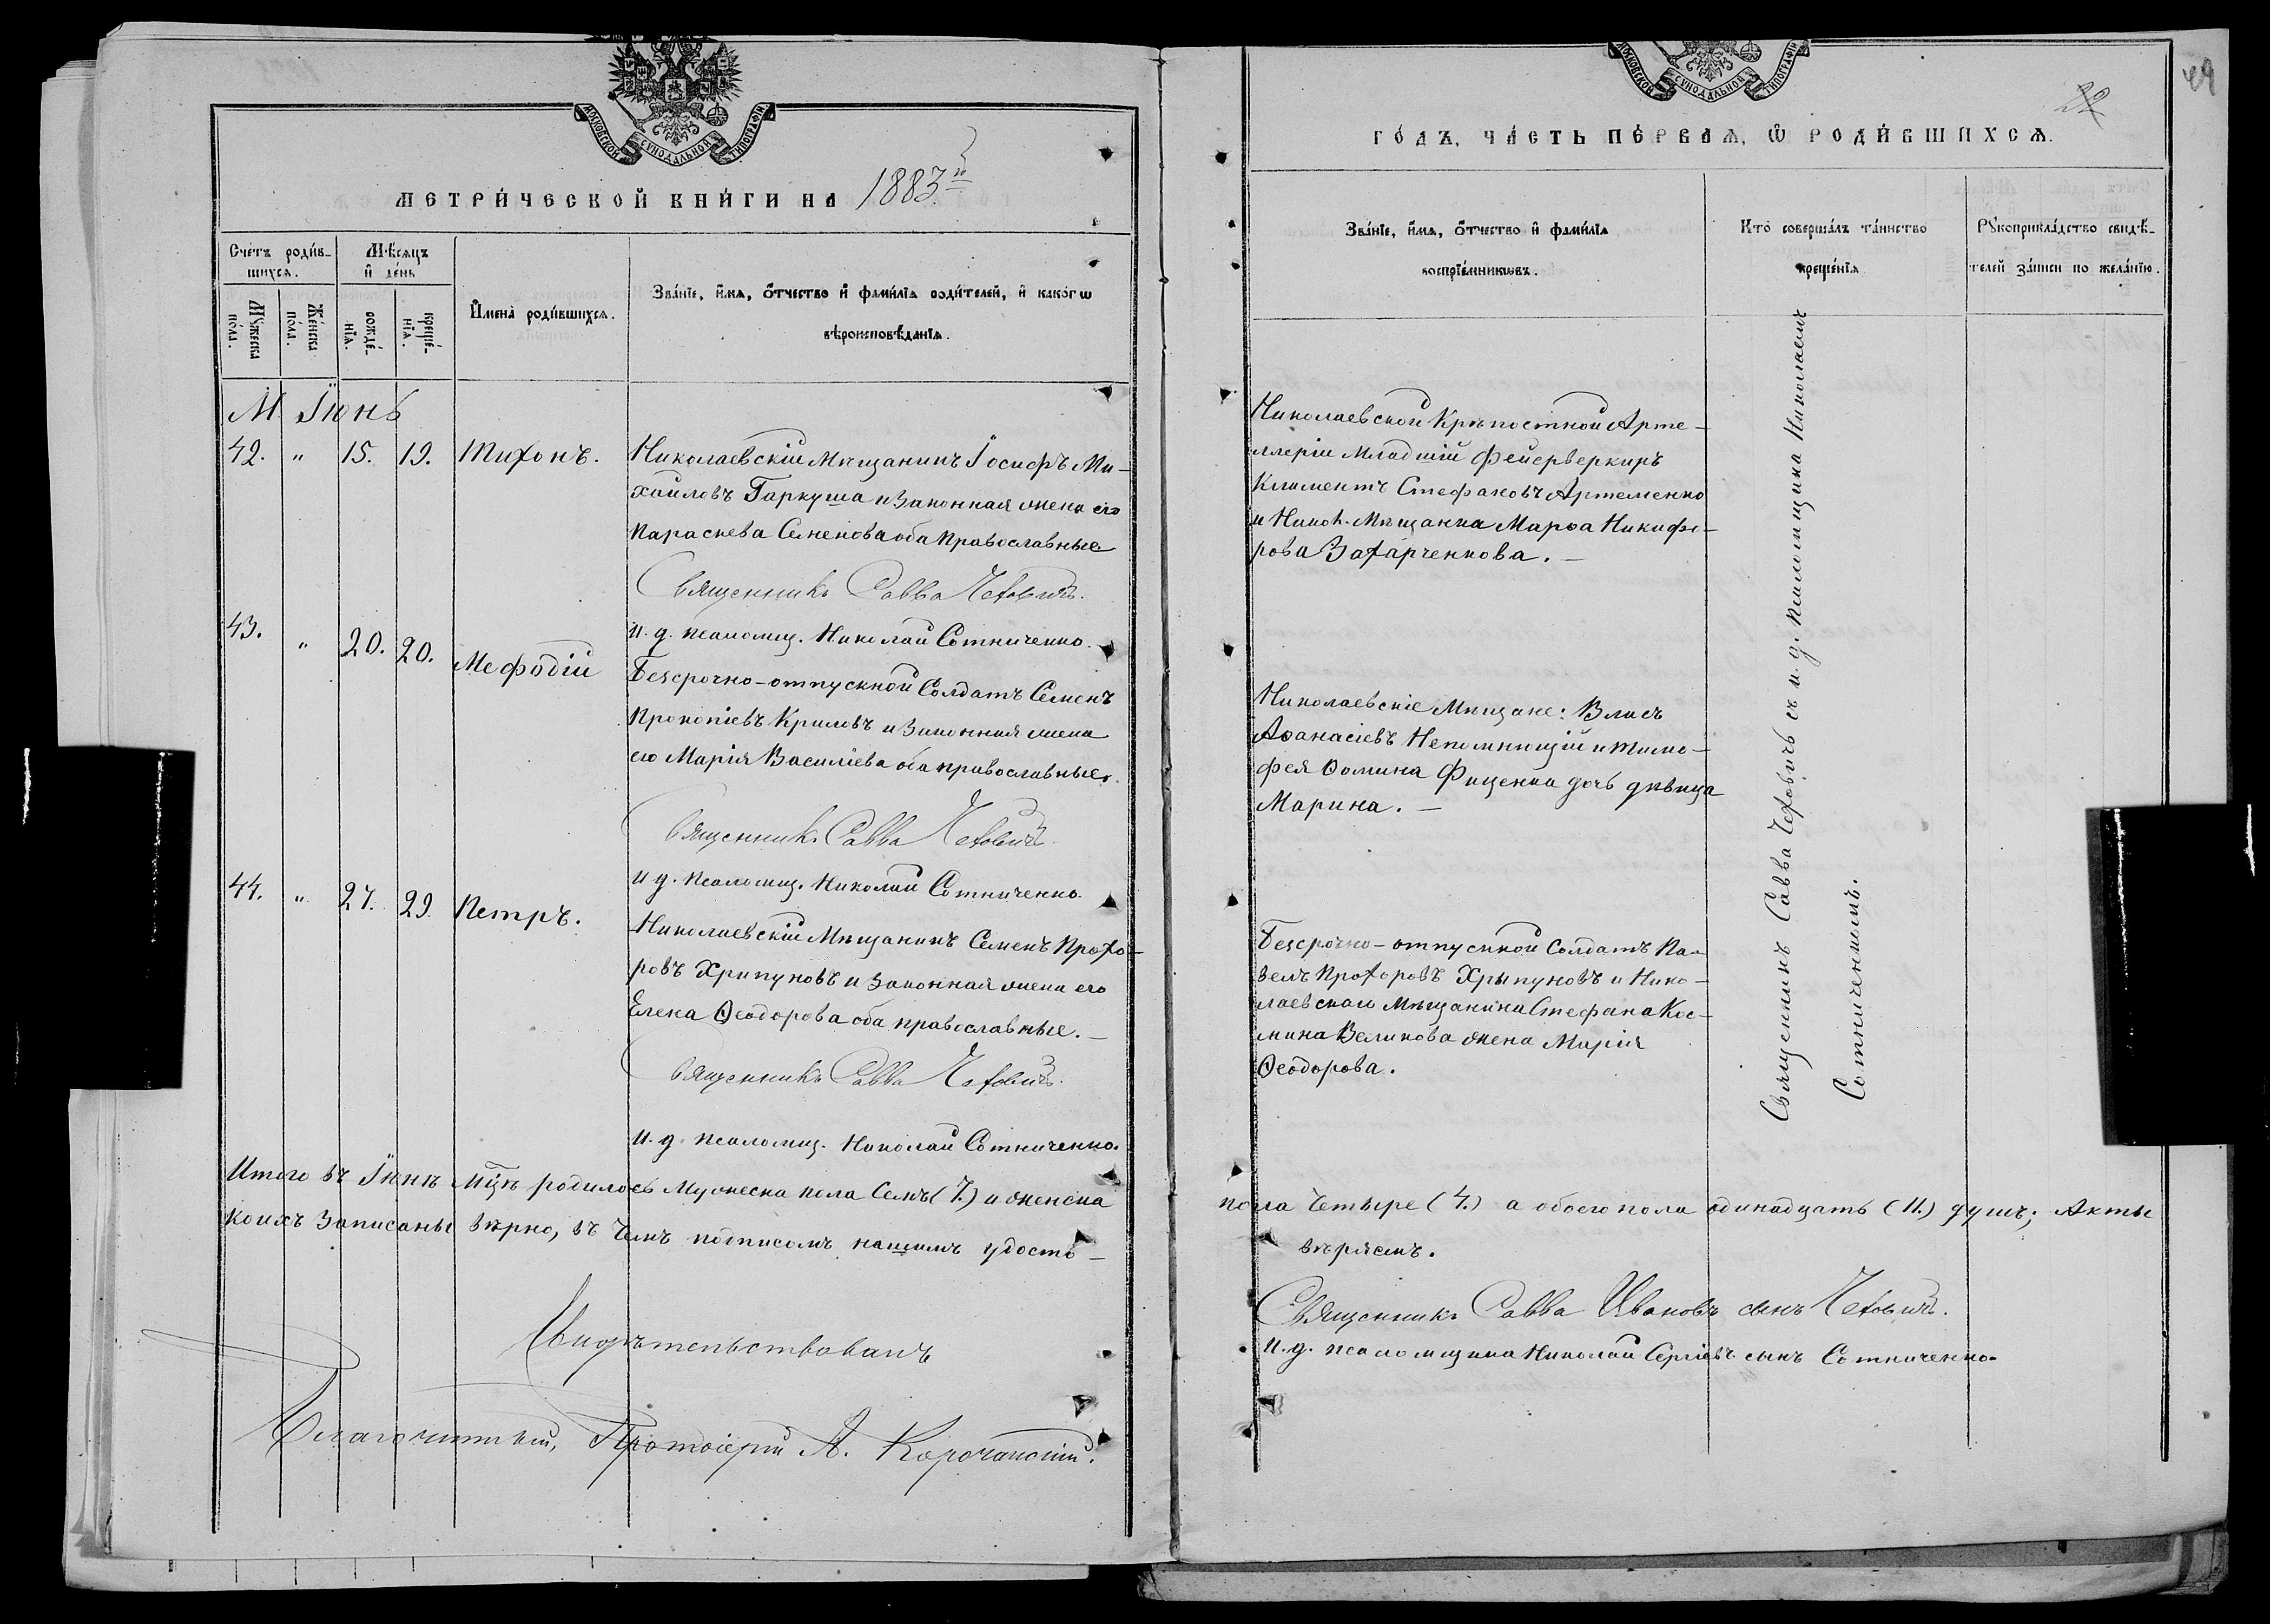 МОСКОВСКОЙ СѴНОДАЛЬНОЙ ТИПОГРАФІИ
МЕТРИ́ЧЕСКОЙ КНИ́ГИ НА 1883й
Сче́тъ роди́в-
шихся.
Мѣ́сяцъ
и҆ де́нь
Мꙋ́жеска
по́ла.
Же́нска
по́ла.
рожде́-
нїѧ.
креще́-
нїѧ.
И҆мена̀ роди́вшихсѧ.
Зва́нїе, и҆́мѧ, ѻ҆́тчество и҆ фами́лїѧ роди́телей, и҆ како́гѡ
вѣроисповѣ́данїѧ.
М. Іюнь
42. " 15. 19. Тихонъ.
Николаевскій Мѣщанинъ Іосифъ Ми-
хайловъ Гаркуша и законная жена его
Параскева Семенова оба Православные
Священникъ Савва Чехович.
и. д. псаломщ. Николай Сотниченко.
43. " 20. 20. Мефодій
Безсрочно-отпускной Солдатъ Семенъ
Прокопіевъ Криловъ и законная жена
его Марія Василіева оба православные.
Священникъ Савва Чехович
и д. псаломщ. Николай Сотниченко.
44. " 27. 29. Петръ.
Николаевскій Мѣщанинъ Семенъ Прохо-
ровъ Хрипуновъ и законная жена его
Елена Ѳеодорова оба православные. —
Священникъ Савва Чехович.
и. д. псаломщ. Николай Сотниченко.
Итого въ Іюнѣ мцѣ родилось Мужеска пола Семь (7.) и женска
коихъ записаны вѣрно, въ чемъ подписомъ нашимъ удосто-
Свидѣтельствовалъ
Благочинный, Протоіерей А. Корочанскій.
МОСКОВСКОЙ СѴНОДАЛЬНОЙ ТИПОГРАФІИ
22
49
ГО́ДЪ, ЧА́СТЬ ПЕ́РВАѦ, Ѽ РОДИ́ВШИХСѦ.
Зва́нїе, и҆́мѧ, ѻ҆́тчество и҆ фами́лїѧ
воспрїе́мникѡвъ.
Кто̀ соверша́лъ та́инство
креще́нїѧ
Рꙋкоприкла́дство свидѣ́-
телей за́писи по жела́нїю.
Николаевской Крѣпостной Арте-
ллеріи младшій фейерверкиръ
Климентъ Стефановъ Артеменко
и Никол. Мѣщанка Марѳа Никифо-
рова Захарченкова. —
Николаевскіе Мѣщане: Власъ
Аѳанасіевъ Непомнющій и Тимо-
фея Ѳомина Фиценка дочь дѣвица
Марина. —
Безсрочно-отпускной солдатъ Па-
велъ Прохоровъ Хрыпуновъ и Нико-
лаевскаго Мѣщанина Стефана Кос-
мина Великова жена Марія
Ѳеодорова.
Священникъ Савва Чеховичъ съ и. д. псаломщика Николаемъ
Сотниченкомъ.
пола четыре (4.) а обоего пола одинадцать (11.) душъ; Акты
вѣряемъ.
Священникъ Савва Ивановъ сынъ Чехович.
И. д. псаломщика Николай Сергіевъ сынъ Сотниченко.